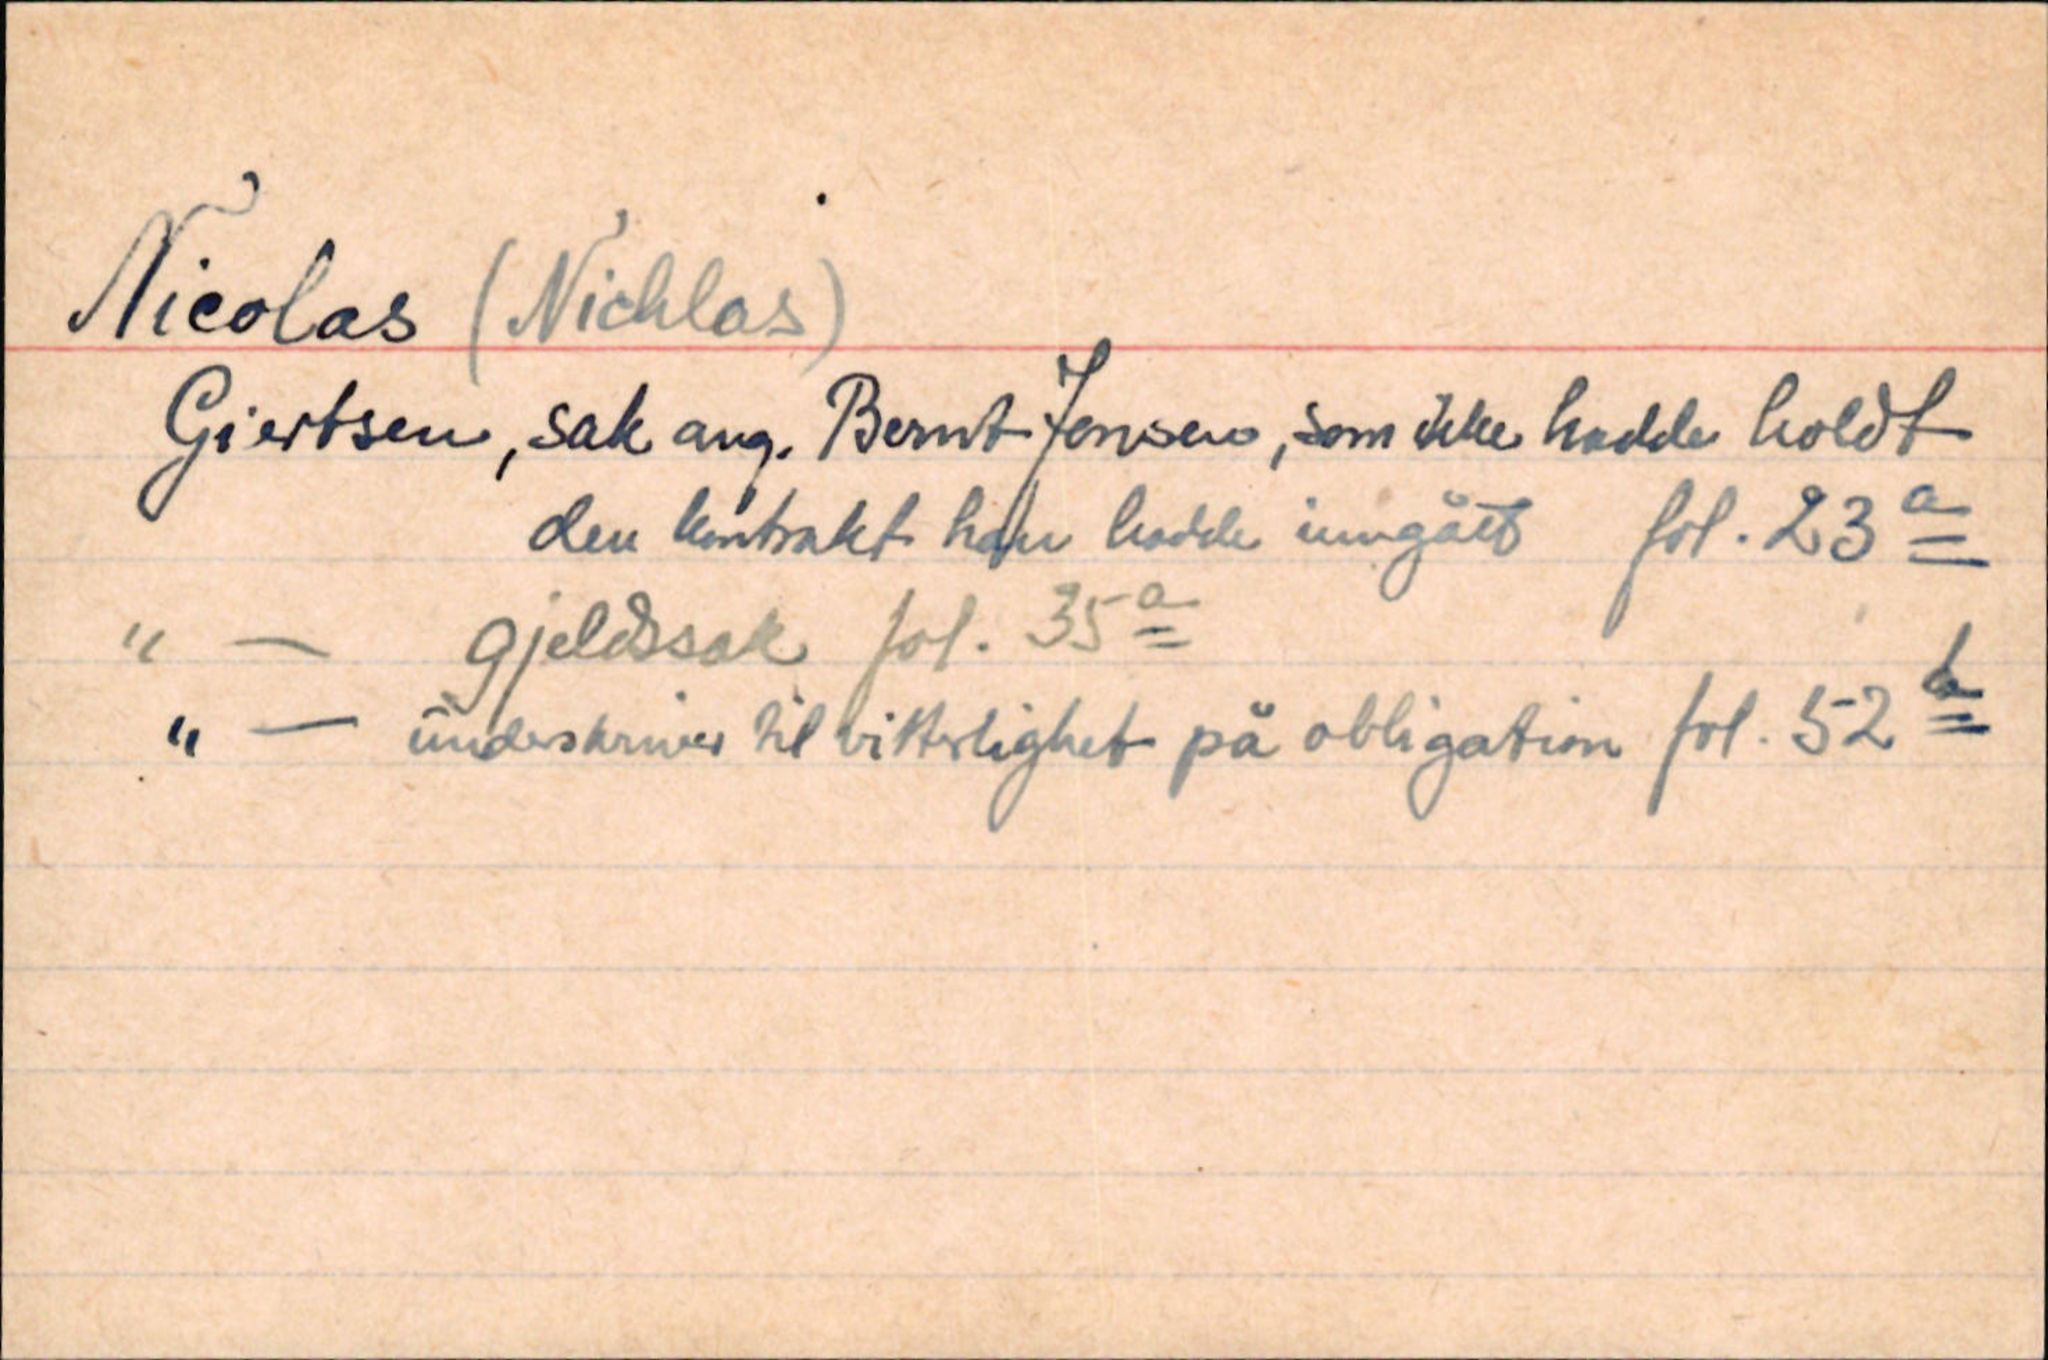 Nicolas (Nichlas)
Giertsen, sak ang. Bernt Jensen, som ikke hadde holdt
den kontrakt han hadde inngått fol. 23a
" — gjeldssak fol. 35a
" — underskriver til vitterlighet på obligation fol. 52b